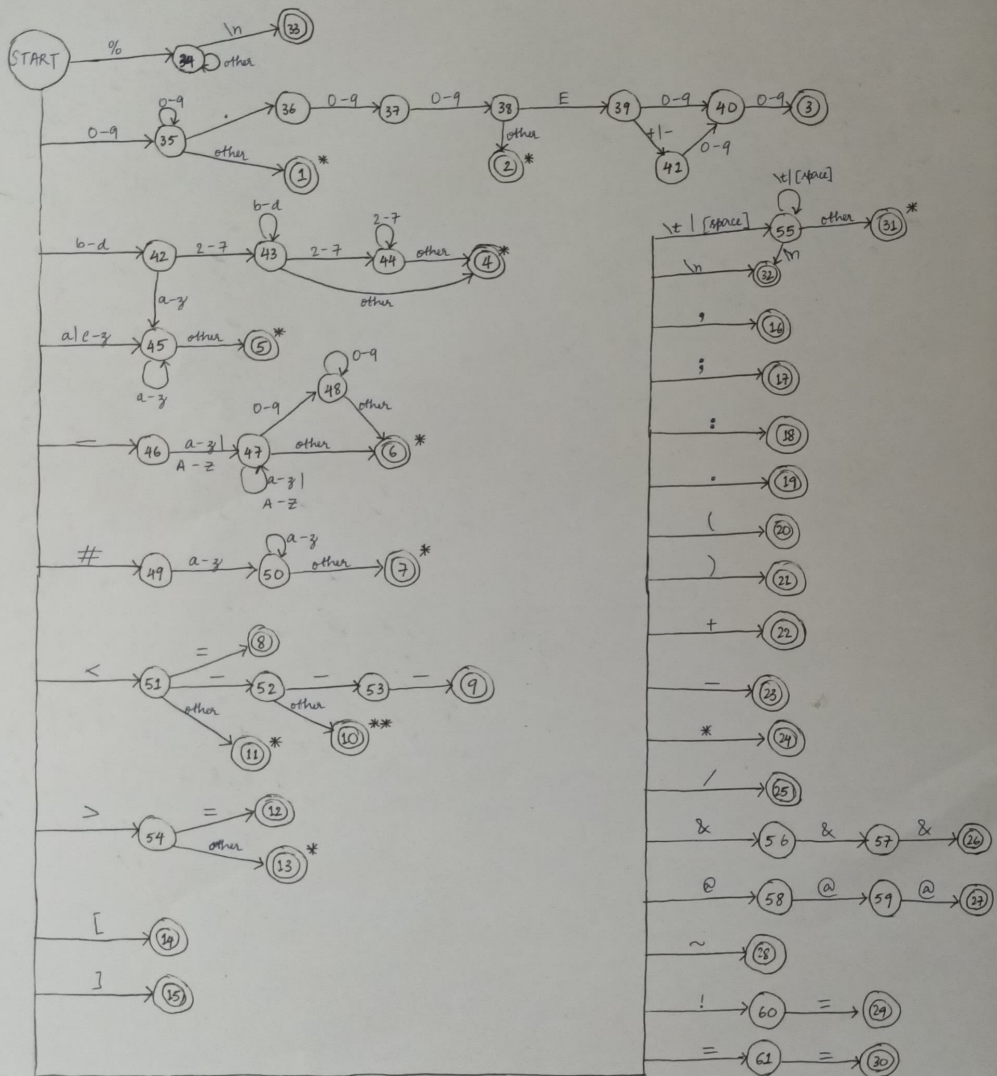 START % 34 \n 33
other
0-9 35 0-9 . 36 0-9 37 0-9 38 E 39 0-9 40 0-9 3
other 1 * other 2 * +|- 41 0-9
b-d 42 2-7 43 b-d 2-7 44 2-7 other 4 *
other
a-z
a|e-z 45 other 5 *
a-z
_ 46 a-z| A-Z 47 0-9 48 0-9 other
other 6 *
a-z|
A-Z
# 49 a-z 50 a-z other 7 *
< 51 = 8
- 52 - 53 - 9
other 11 * other 10 **
> 54 = 12
other 13 *
[ 14
] 15
\t | [space] 55 \t|[space] other 31 *
\n 32 \n
, 16
; 17
: 18
. 19
( 20
) 21
+ 22
- 23
* 24
/ 25
& 56 & 57 & 26
@ 58 @ 59 @ 27
~ 28
! 60 = 29
= 61 = 30